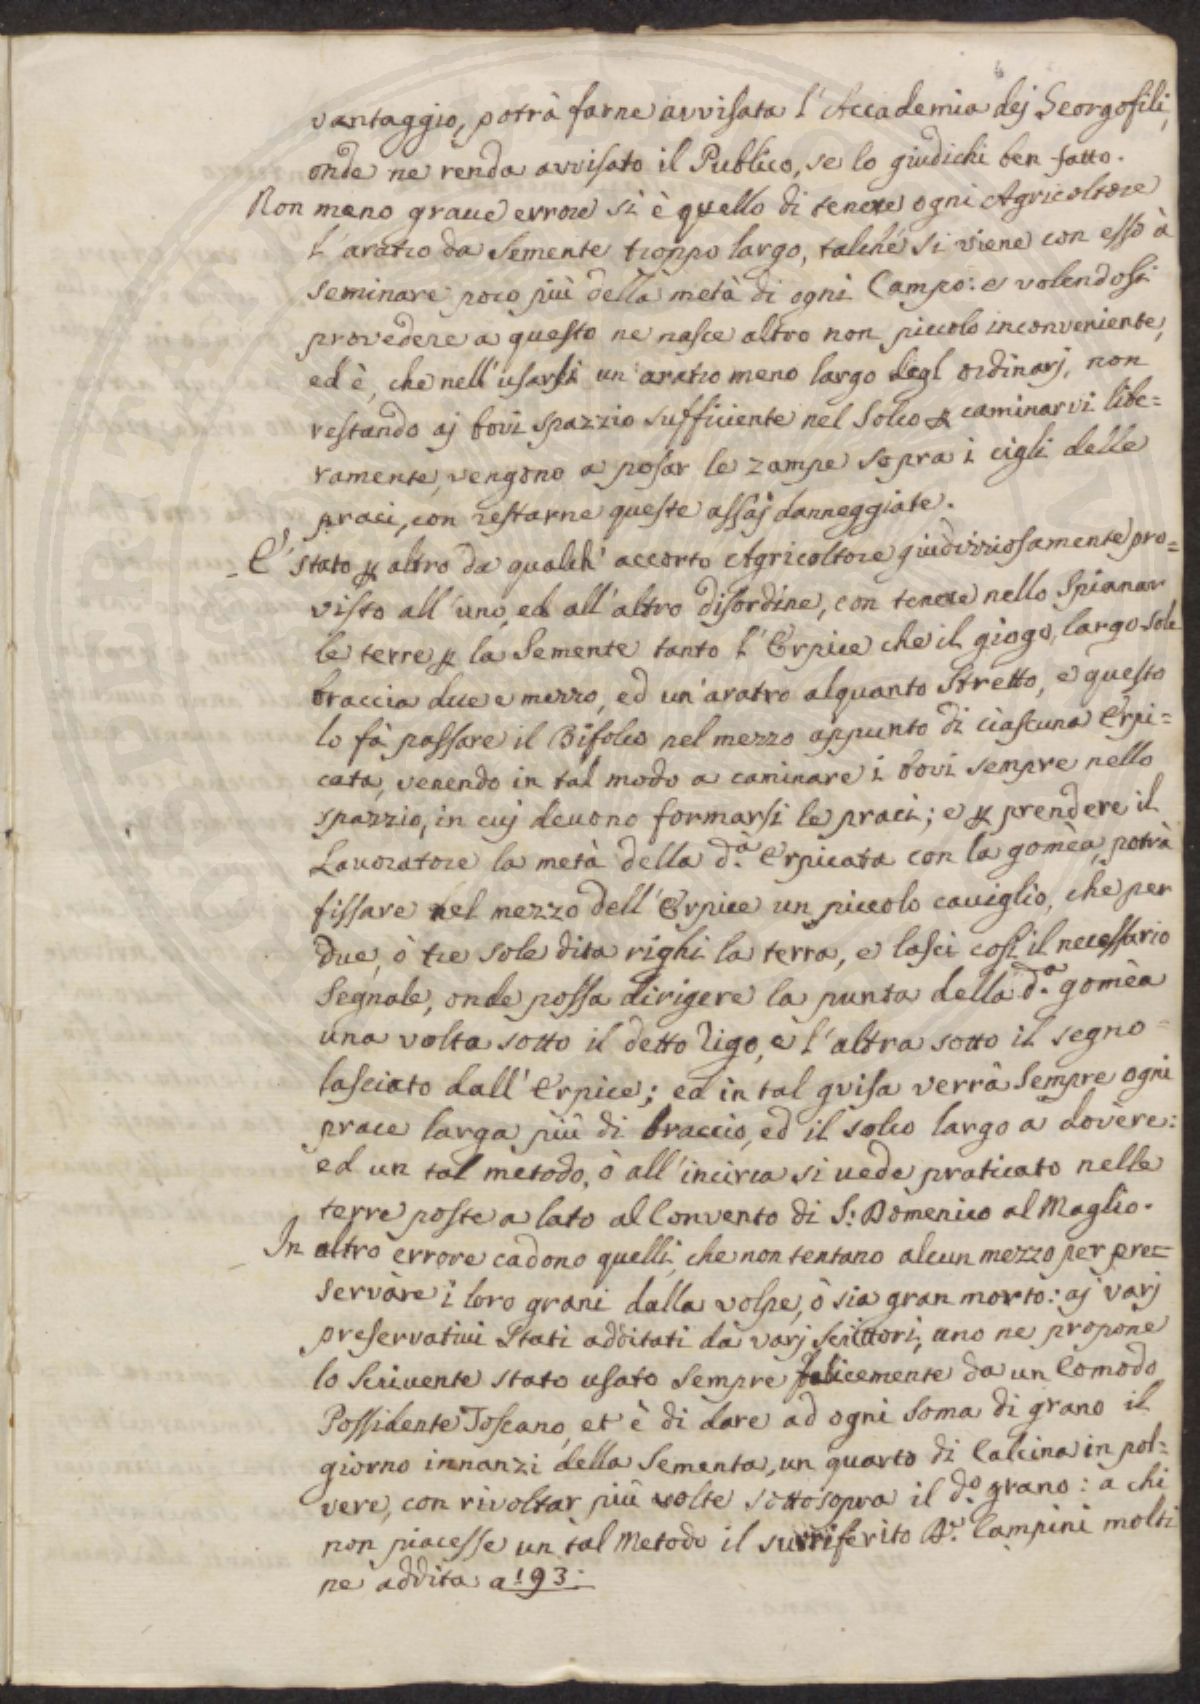 vantaggio, potrà farne avvisata l'Accademia dej Georgofili,
onde ne renda avvisato il Publico, se lo giudichi ben fatto.
Non meno graue errore si è quello di tenere ogni Agricoltore
l'aratro da Semente troppo largo, talché si viene con esso à
seminare poco più della metà di ogni Campo: e volendosi
provedere a questo ne nasce altro non piccolo inconveniente,
ed è, che nell'usarsi un'aratro meno largo degl'ordinarj, non
restando aj bovi spazzio sufficiente nel Solco p caminarvi libe=
ramente, vengono a posar le zampe sopra i cigli delle
praci, con restarne queste assaj danneggiate.
E' stato p altro da qualch' accorto Agricoltore giudizziosamente pro=
visto all'uno, ed all'altro disordine, con tenere nello Spianar
le terre p la Semente tanto l'Erpice che il giogo, largo sole
braccia due e mezzo, ed un'aratro alquanto Stretto, e questo
lo fà passare il Bifolco nel mezzo appunto di ciascuna Erpi=
cata, venendo in tal modo a caminare i bovi sempre nello
spazzio, in cuj deuono formarsi le praci; e p prendere il
Lauoratore la metà della d.ª Erpicata con la gomèa, potrà
fissare nel mezzo dell'Erpice un piccolo cauiglio, che per
due, ò tre sole dita righi la terra, e lasci così il necessario
Segnale, onde possa dirigere la punta della d.ª gomèa
una volta sotto il detto rigo, e l'altra sotto il segno =
lasciato dall'Erpice; ed in tal guisa verrà sempre ogni
prace larga più di braccio, ed il solco largo a dovère:
ed un tal metodo, ò all'incirca si uede praticato nelle
terre poste a lato al Convento di S: Domenico al Maglio.
In altro errore cadono quelli, che non tentano alcun mezzo per pre=
servàre i loro grani dalla volpe, ò sia gran morto: aj varj
preservatiui Stati additati da varj Scrittori, uno ne propone
lo Scrivente stato usato sempre felicemente da un Comodo
Possidente Toscano, et è di dare ad ogni Soma di grano il
giorno innanzi della Sementa, un quarto di Calcina in pol=
vere, con rivoltar più volte sottosopra il d.º grano: a chi
non piacesse un tal Metodo il surriferito Campini molti
ne addita a 193: